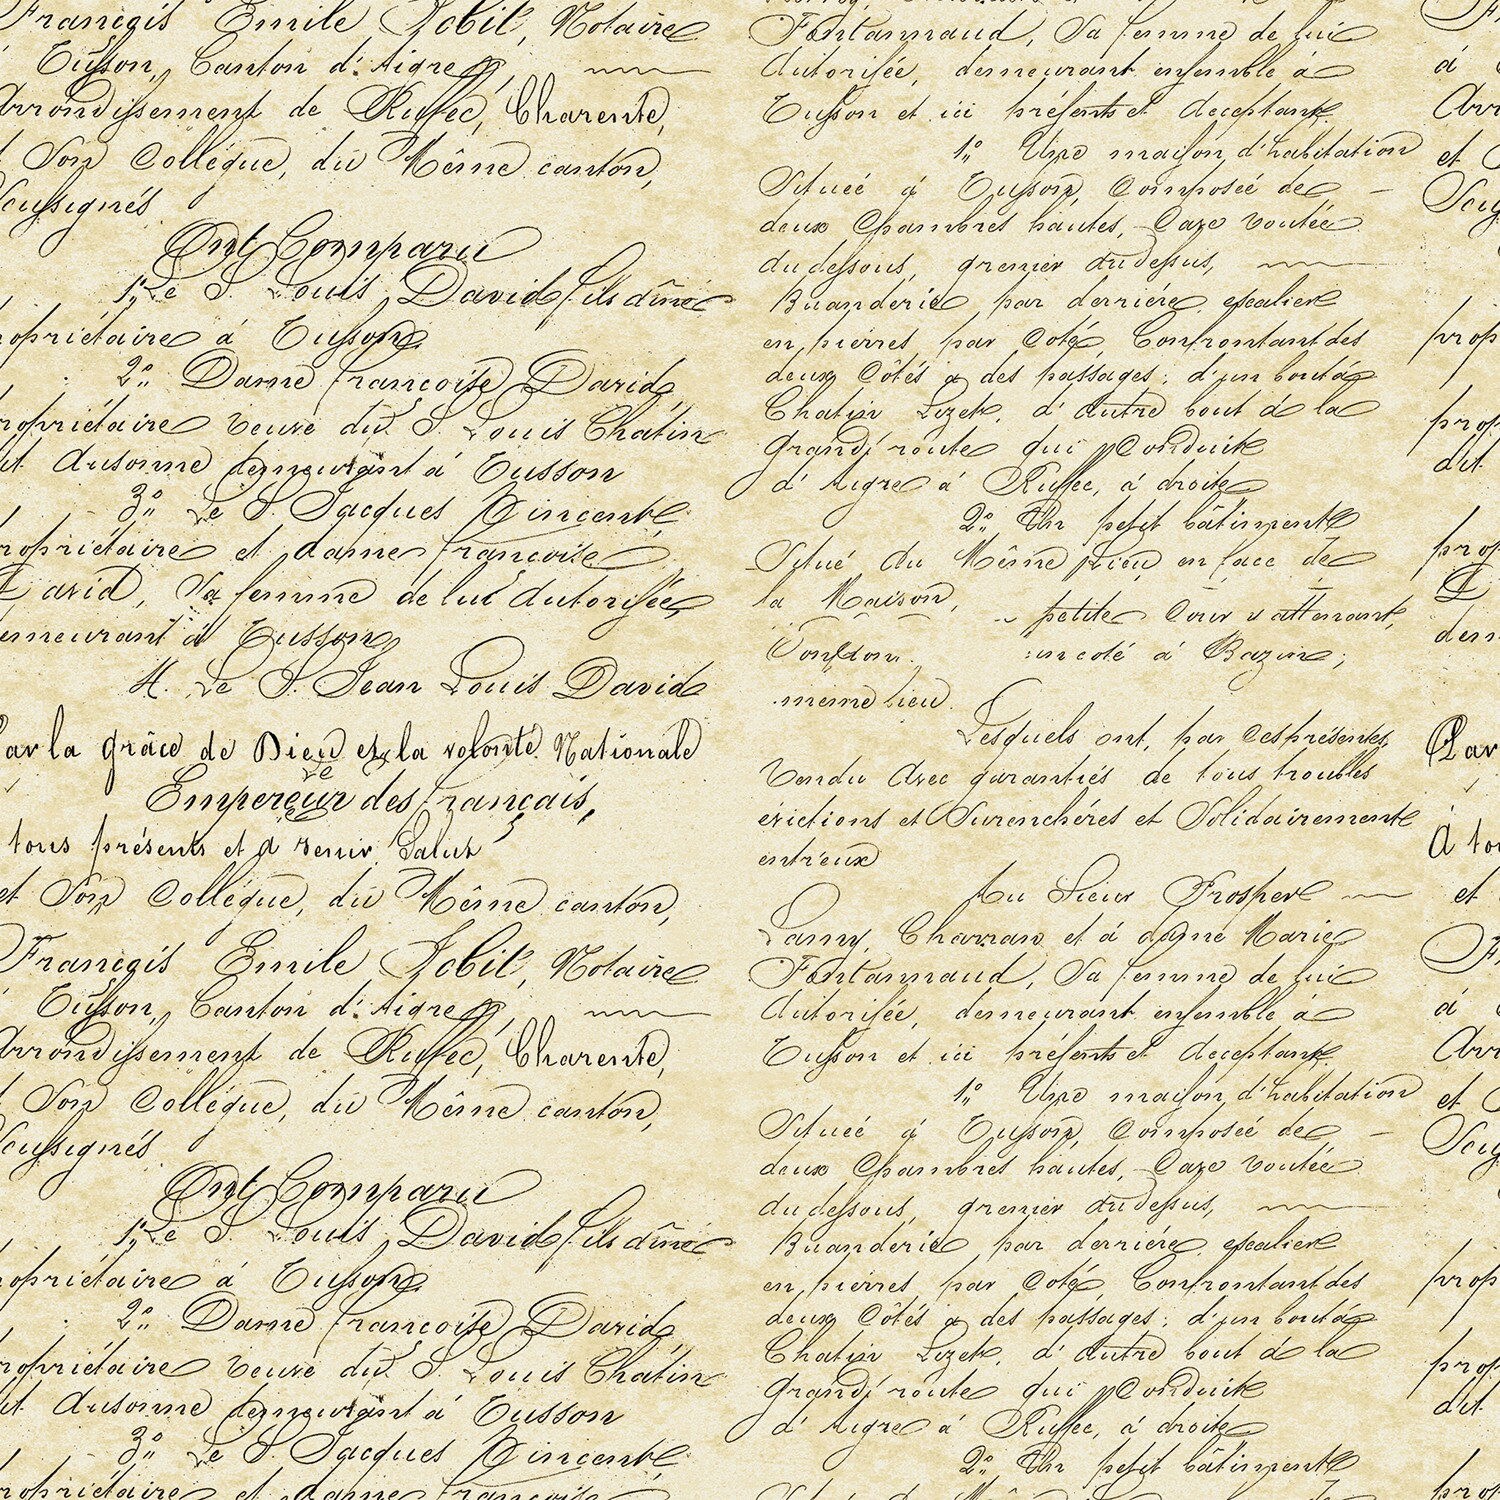 François Emile Jobit, Notaire
Tusson, Canton d'Aigre
Arrondissement de Ruffec, Charente,
Son Collègue, du Même canton,
Soussignés
Ont Comparu
1º Le S. Louis David fils aîné
propriétaire à Tusson
2º Dame françoise David,
propriétaire veuve du S. Louis Chatin
dit Ausonne demeurant à Tusson
3º Le S. Jacques Vincent,
propriétaire et dame françoise
David, Sa femme de lui Autorisée,
demeurant à Tusson,
4. Le S. Jean Louis David
Par la grâce de Dieu et la volonté Nationale
Le
Empereur des français,
tous présents et à venir, Salut
et Son Collègue, du Même canton,
François Emile Jobit, Notaire
Tusson, Canton d'Aigre
Arrondissement de Ruffec, Charente,
Son Collègue, du Même canton,
Soussignés
Ont Comparu
1º Le S. Louis David fils aîné
propriétaire à Tusson
2º Dame françoise David,
propriétaire veuve du S. Louis Chatin
dit Ausonne demeurant à Tusson
3º Le S. Jacques Vincent,
propriétaire et dame françoise
Fontannaud, Sa femme de lui
Autorisée, demeurant ensemble à
Tusson et ici présents et acceptant
1º Une maison d'habitation
Située à Tusson, Composée de
deux Chambres hautes, Cave voutée
au dessous, grenier au dessus,
Buanderie par derrière, escalier
en pierres par Coté, Confrontant des
deux Côtés à des passages, d'un bout à
Chatin Lizet, d'Autre bout à la
Grand'route qui Conduit
d'Aigre à Ruffec, à droite
2º Un petit bâtiment
Situé au Même lieu en face de
la Maison, petite Cour y attenant,
Confron. un coté à Bazin;
même lieu
Lesquels ont, par ces présentes,
Vendu Avec garanties de tous troubles
évictions et Surenchéres et Solidairement
entr'eux
Au Sieur Prosper
Lamy, Charron et à dame Marie
Fontannaud, Sa femme de lui
Autorisée, demeurant ensemble à
Tusson et ici présents et acceptant
1º Une maison d'habitation
Située à Tusson, Composée de
deux Chambres hautes, Cave voutée
au dessous, grenier au dessus,
Buanderie par derrière, escalier
en pierres par Coté, Confrontant des
deux Côtés à des passages, d'un bout à
Chatin Lizet, d'Autre bout à la
Grand'route qui Conduit
d'Aigre à Ruffec, à droite
2º Un petit bâtiment
à
Arr
et
Sous
prop
prop
dit
prop
D
dem
Par
À tou
et
Fr
à
Arr
et
Sous
prop
prop
dit